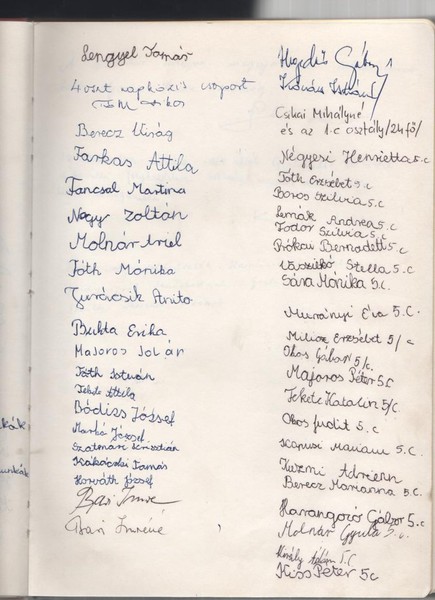 Lengyel Tamás
4 oszt napközis csoport
Berecz Virág
Farkas Attila
Fancsal Martina
Nagy Zoltán
Molnár Ariel
Tóth Mónika
Anita
Bukta Erika
Majoros Zoltán
Tóth István
Fekete Attila
Bódizs József
Markó József
Szatmári Krisztián
Rákóczki Tamás
Horváth József
Bari Imre
Bari Imréné
Hegedűs Gábor
Kovács István
Csikai Mihályné
és az 1.c osztály /24 fő/
Négyesi Henrietta 5.c
Tóth Erzsébet 5.c
Boros Szilvia 5.c
Lemák Andrea 5.c
Fodor Szilvia 5.c
Prókai Bernadett 5.c
Stella 5.c
Sára Mónika 5.c.
Murányi Éva 5.c
Erzsébet 5/c
Okos Gábor 5/c
Majoros Péter 5.c
Fekete Katalin 5/c.
Okos Judit 5.c
Kapusi Mariann 5.c
Kuzmi Adrienn
Berecz Marianna 5.c
Harangozó Gábor 5.c
Molnár Gyula 5.c
Király Ádám 5.c
Kiss Péter 5.c